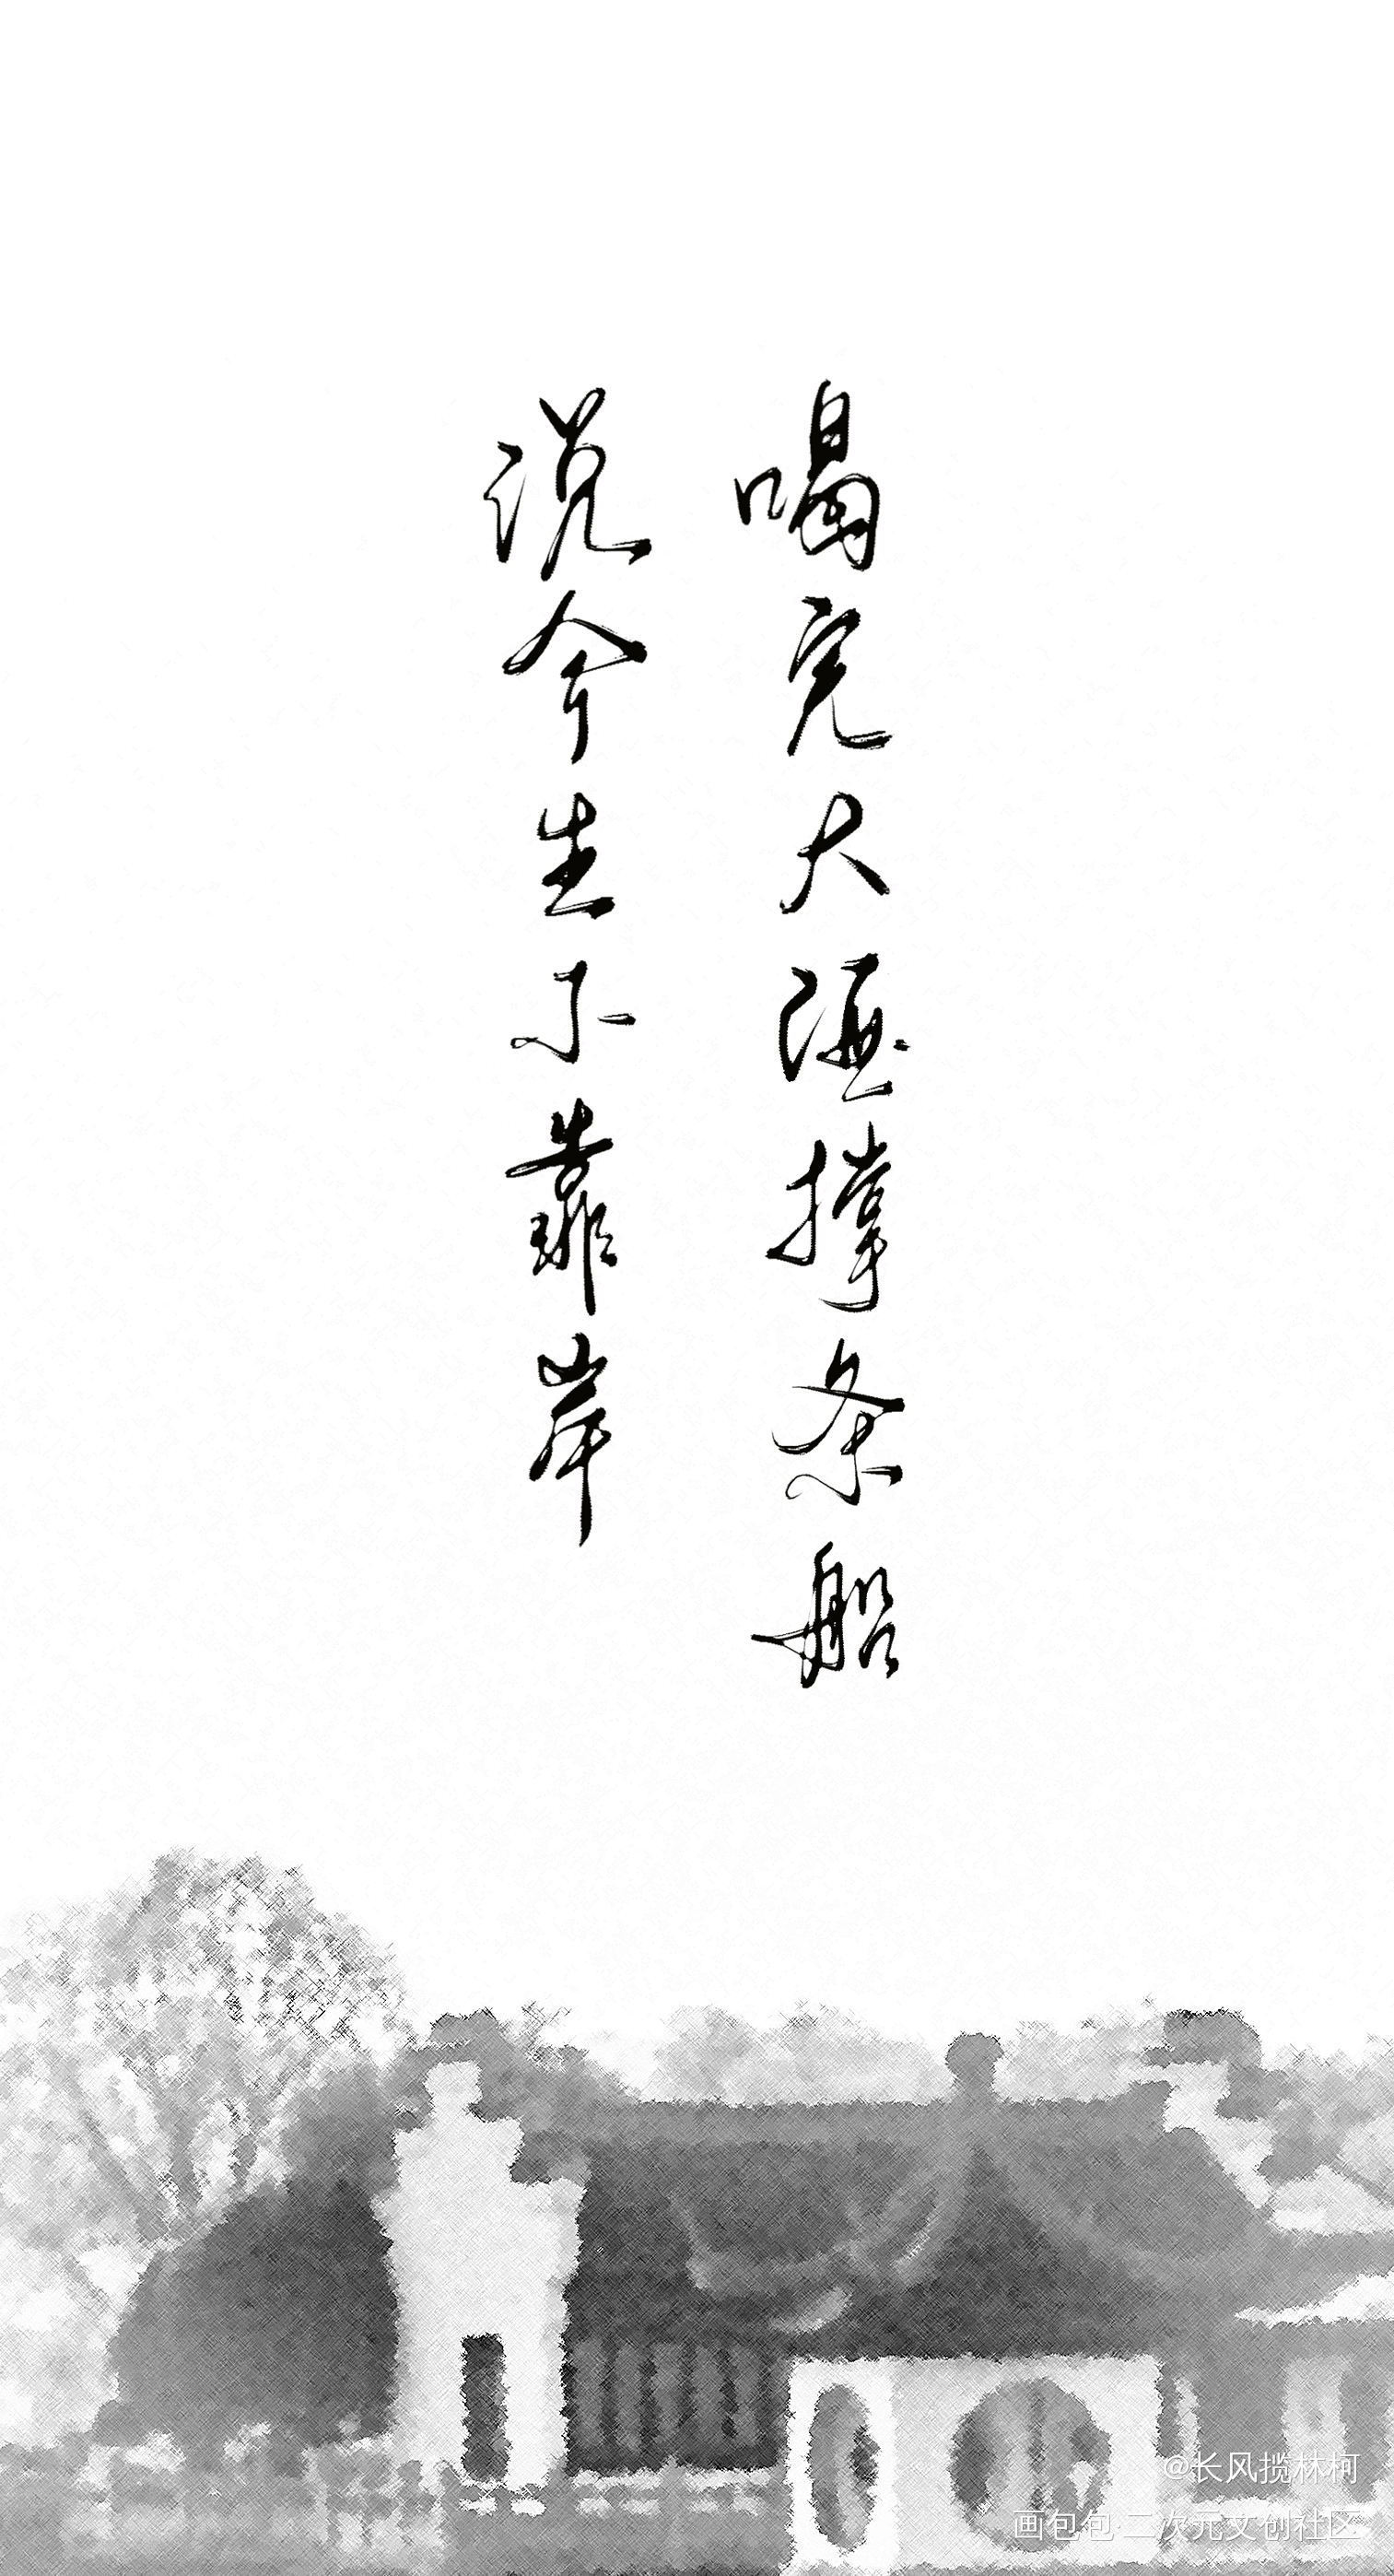 喝完大酒撑条船
说今生不靠岸
@长风揽林柯
画包包·二次元文创社区